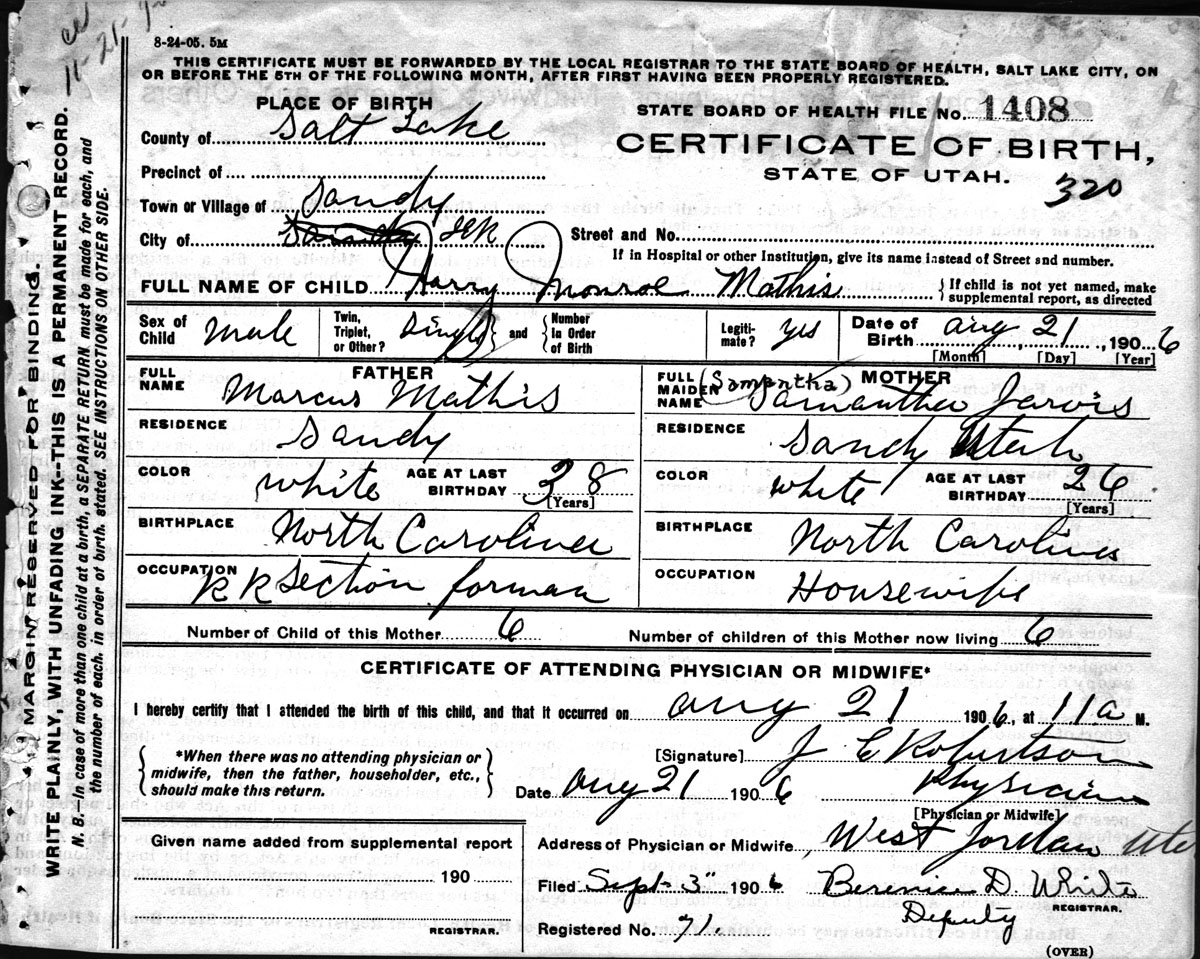 8-24-05. 5M
THIS CERTIFICATE MUST BE FORWARDED BY THE LOCAL REGISTRAR TO THE STATE BOARD OF HEALTH, SALT LAKE CITY, ON
OR BEFORE THE 5TH OF THE FOLLOWING MONTH, AFTER FIRST HAVING BEEN PROPERLY REGISTERED.
PLACE OF BIRTH
STATE BOARD OF HEALTH FILE No. 1408
County of Salt Lake
CERTIFICATE OF BIRTH,
STATE OF UTAH.
320
Precinct of
Town or Village of Sandy
City of Sandy
Street and No.
If in Hospital or other Institution, give its name instead of Street and number.
FULL NAME OF CHILD Harry Monroe Mathis
{ If child is not yet named, make
supplemental report, as directed
Sex of Child male
Twin, Triplet, or Other? Single } and { Number In Order of Birth
Legitimate? yes
Date of Birth aug 21, 1906
[Month] [Day] [Year]
FATHER
FULL NAME Marcus Mathis
RESIDENCE Sandy
COLOR white AGE AT LAST BIRTHDAY 38 [Years]
BIRTHPLACE North Carolina
OCCUPATION RR Section forman
MOTHER
FULL MAIDEN NAME (Samantha) Samantha Jarvis
RESIDENCE Sandy Utah
COLOR white AGE AT LAST BIRTHDAY 26 [Years]
BIRTHPLACE North Carolina
OCCUPATION Housewife
Number of Child of this Mother 6
Number of children of this Mother now living 6
CERTIFICATE OF ATTENDING PHYSICIAN OR MIDWIFE*
I hereby certify that I attended the birth of this child, and that it occurred on aug 21 1906, at 11a M.
{ *When there was no attending physician or
midwife, then the father, householder, etc.,
should make this return. }
[Signature] J E Robertson
Date aug 21 1906 Physician
[Physician or Midwife]
Address of Physician or Midwife, West Jordan Ute
Given name added from supplemental report
190
REGISTRAR.
Filed Sept 3" 1906 Berenice D. White
REGISTRAR.
Deputy
Registered No. 71
(OVER)
MARGIN RESERVED FOR BINDING.
WRITE PLAINLY, WITH UNFADING INK--THIS IS A PERMANENT RECORD.
N. B. In case of more than one child at a birth, a SEPARATE RETURN must be made for each, and
the number of each, in order of birth, stated. SEE INSTRUCTIONS ON OTHER SIDE.